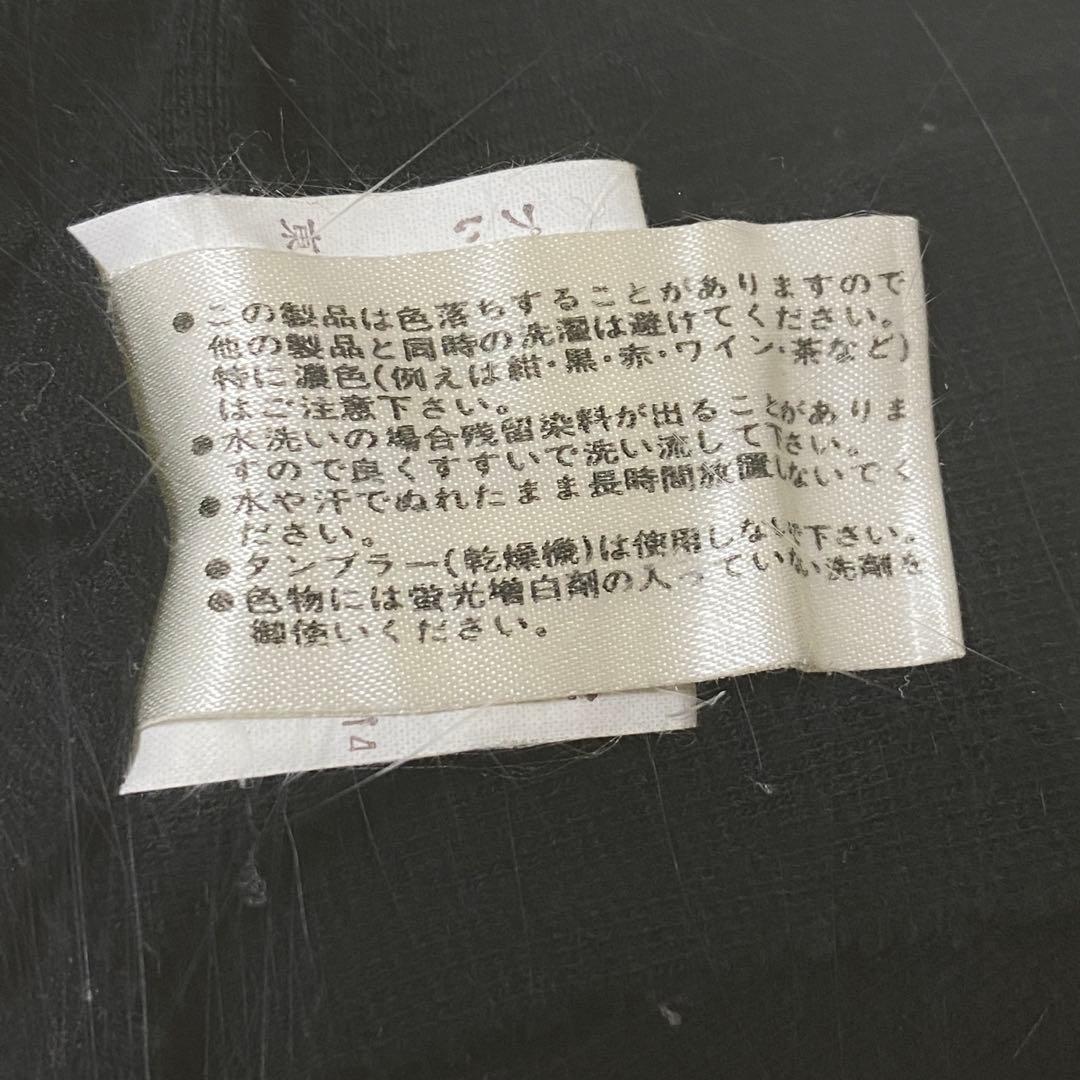 ●この製品は色落ちすることがありますので
他の製品と同時の洗濯は避けてください。
特に濃色(例えは紺・黒・赤・ワイン・茶など)
はご注意下さい。
●水洗いの場合残留染料が出ることがありま
すので良くすすいで洗い流して下さい。
●水や汗でぬれたまま長時間放置しないでく
ださい。
●タンブラー(乾燥機)は使用しないで下さい。
●色物には蛍光増白剤の入っていない洗剤を
御使いください。